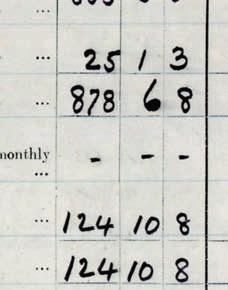 ... 25 1 3
... 878 6 8
monthly - - -
...
... 124 10 8
... 124 10 8